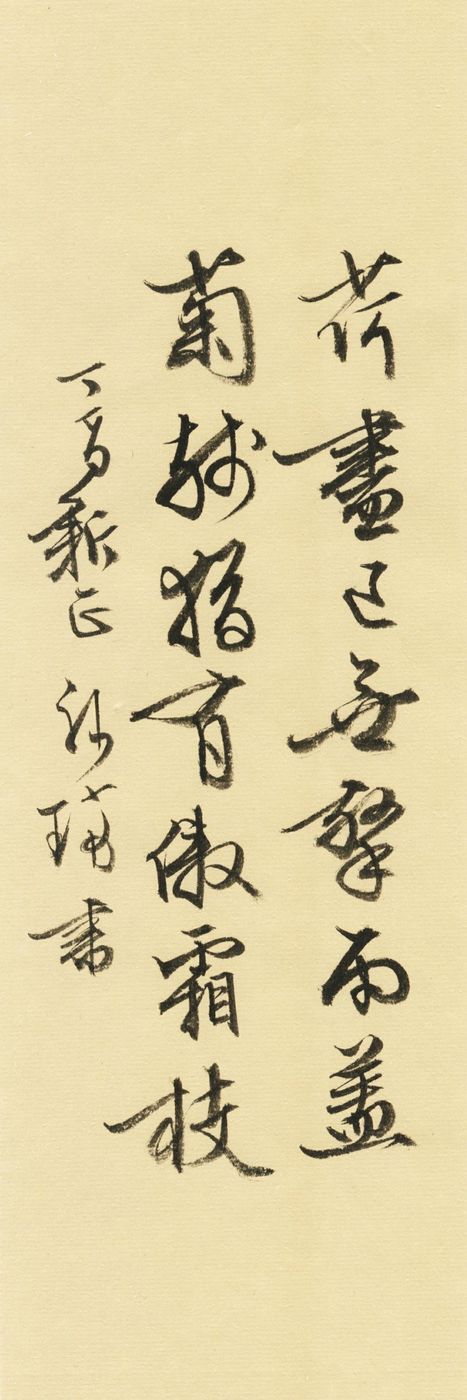 荷盡已無擎雨蓋
菊殘猶有傲霜枝
丁酉新正 書